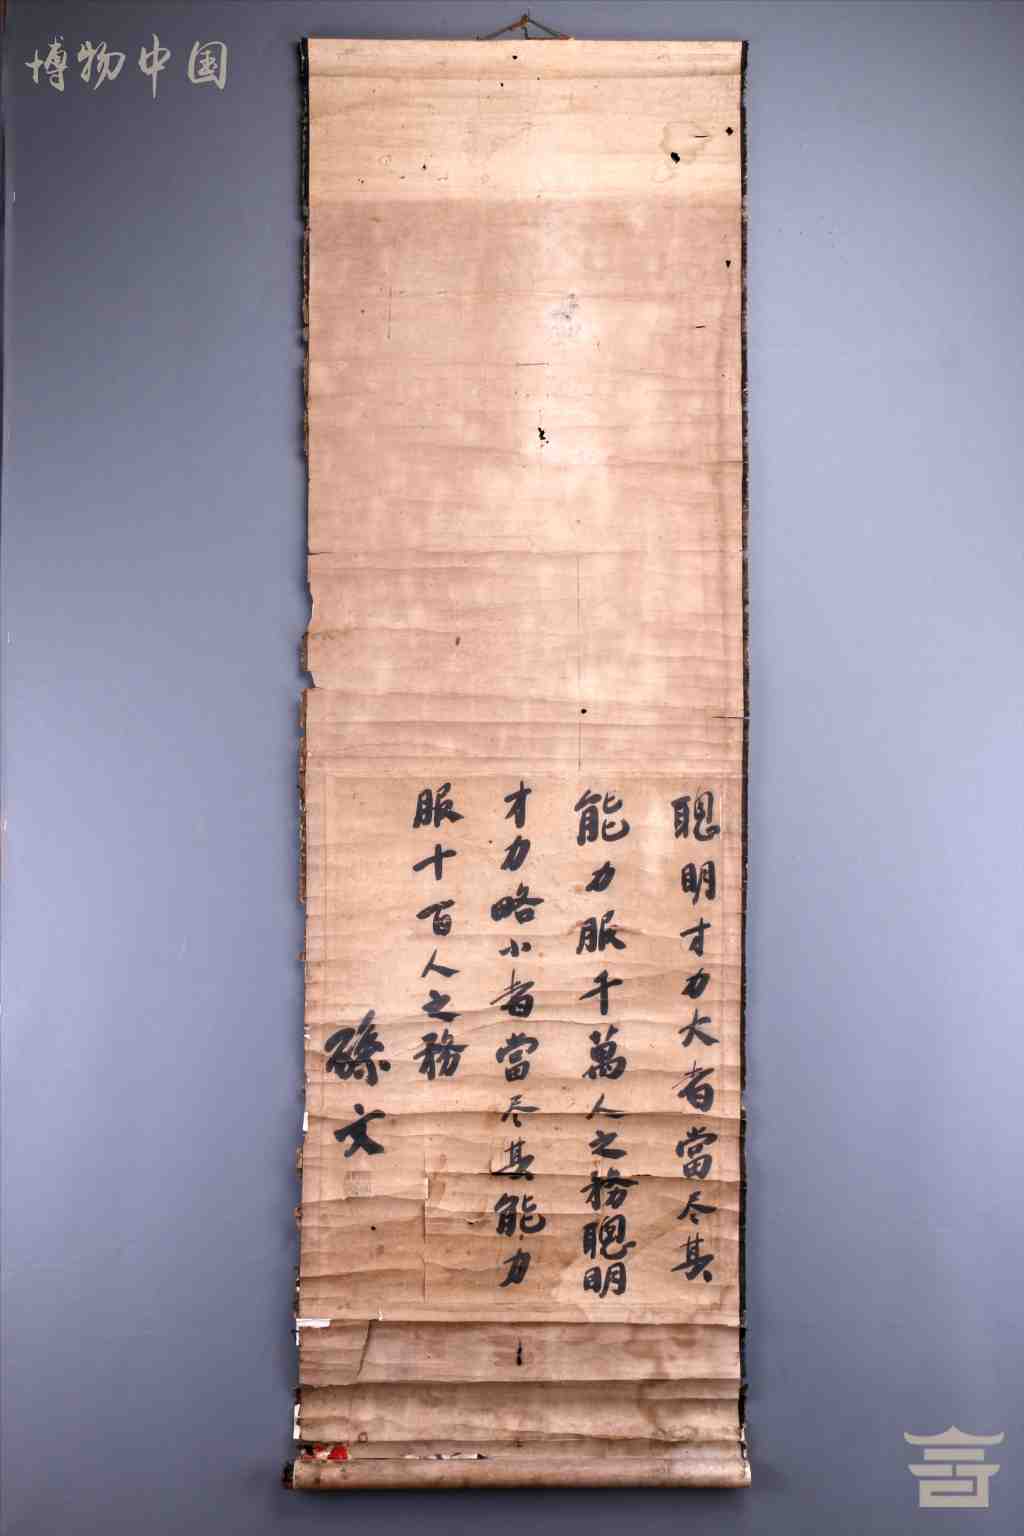 博物中国
聰明才力大者當尽其
能力服千萬人之務聰明
才力略小者當尽其能力
服十百人之務
孫文